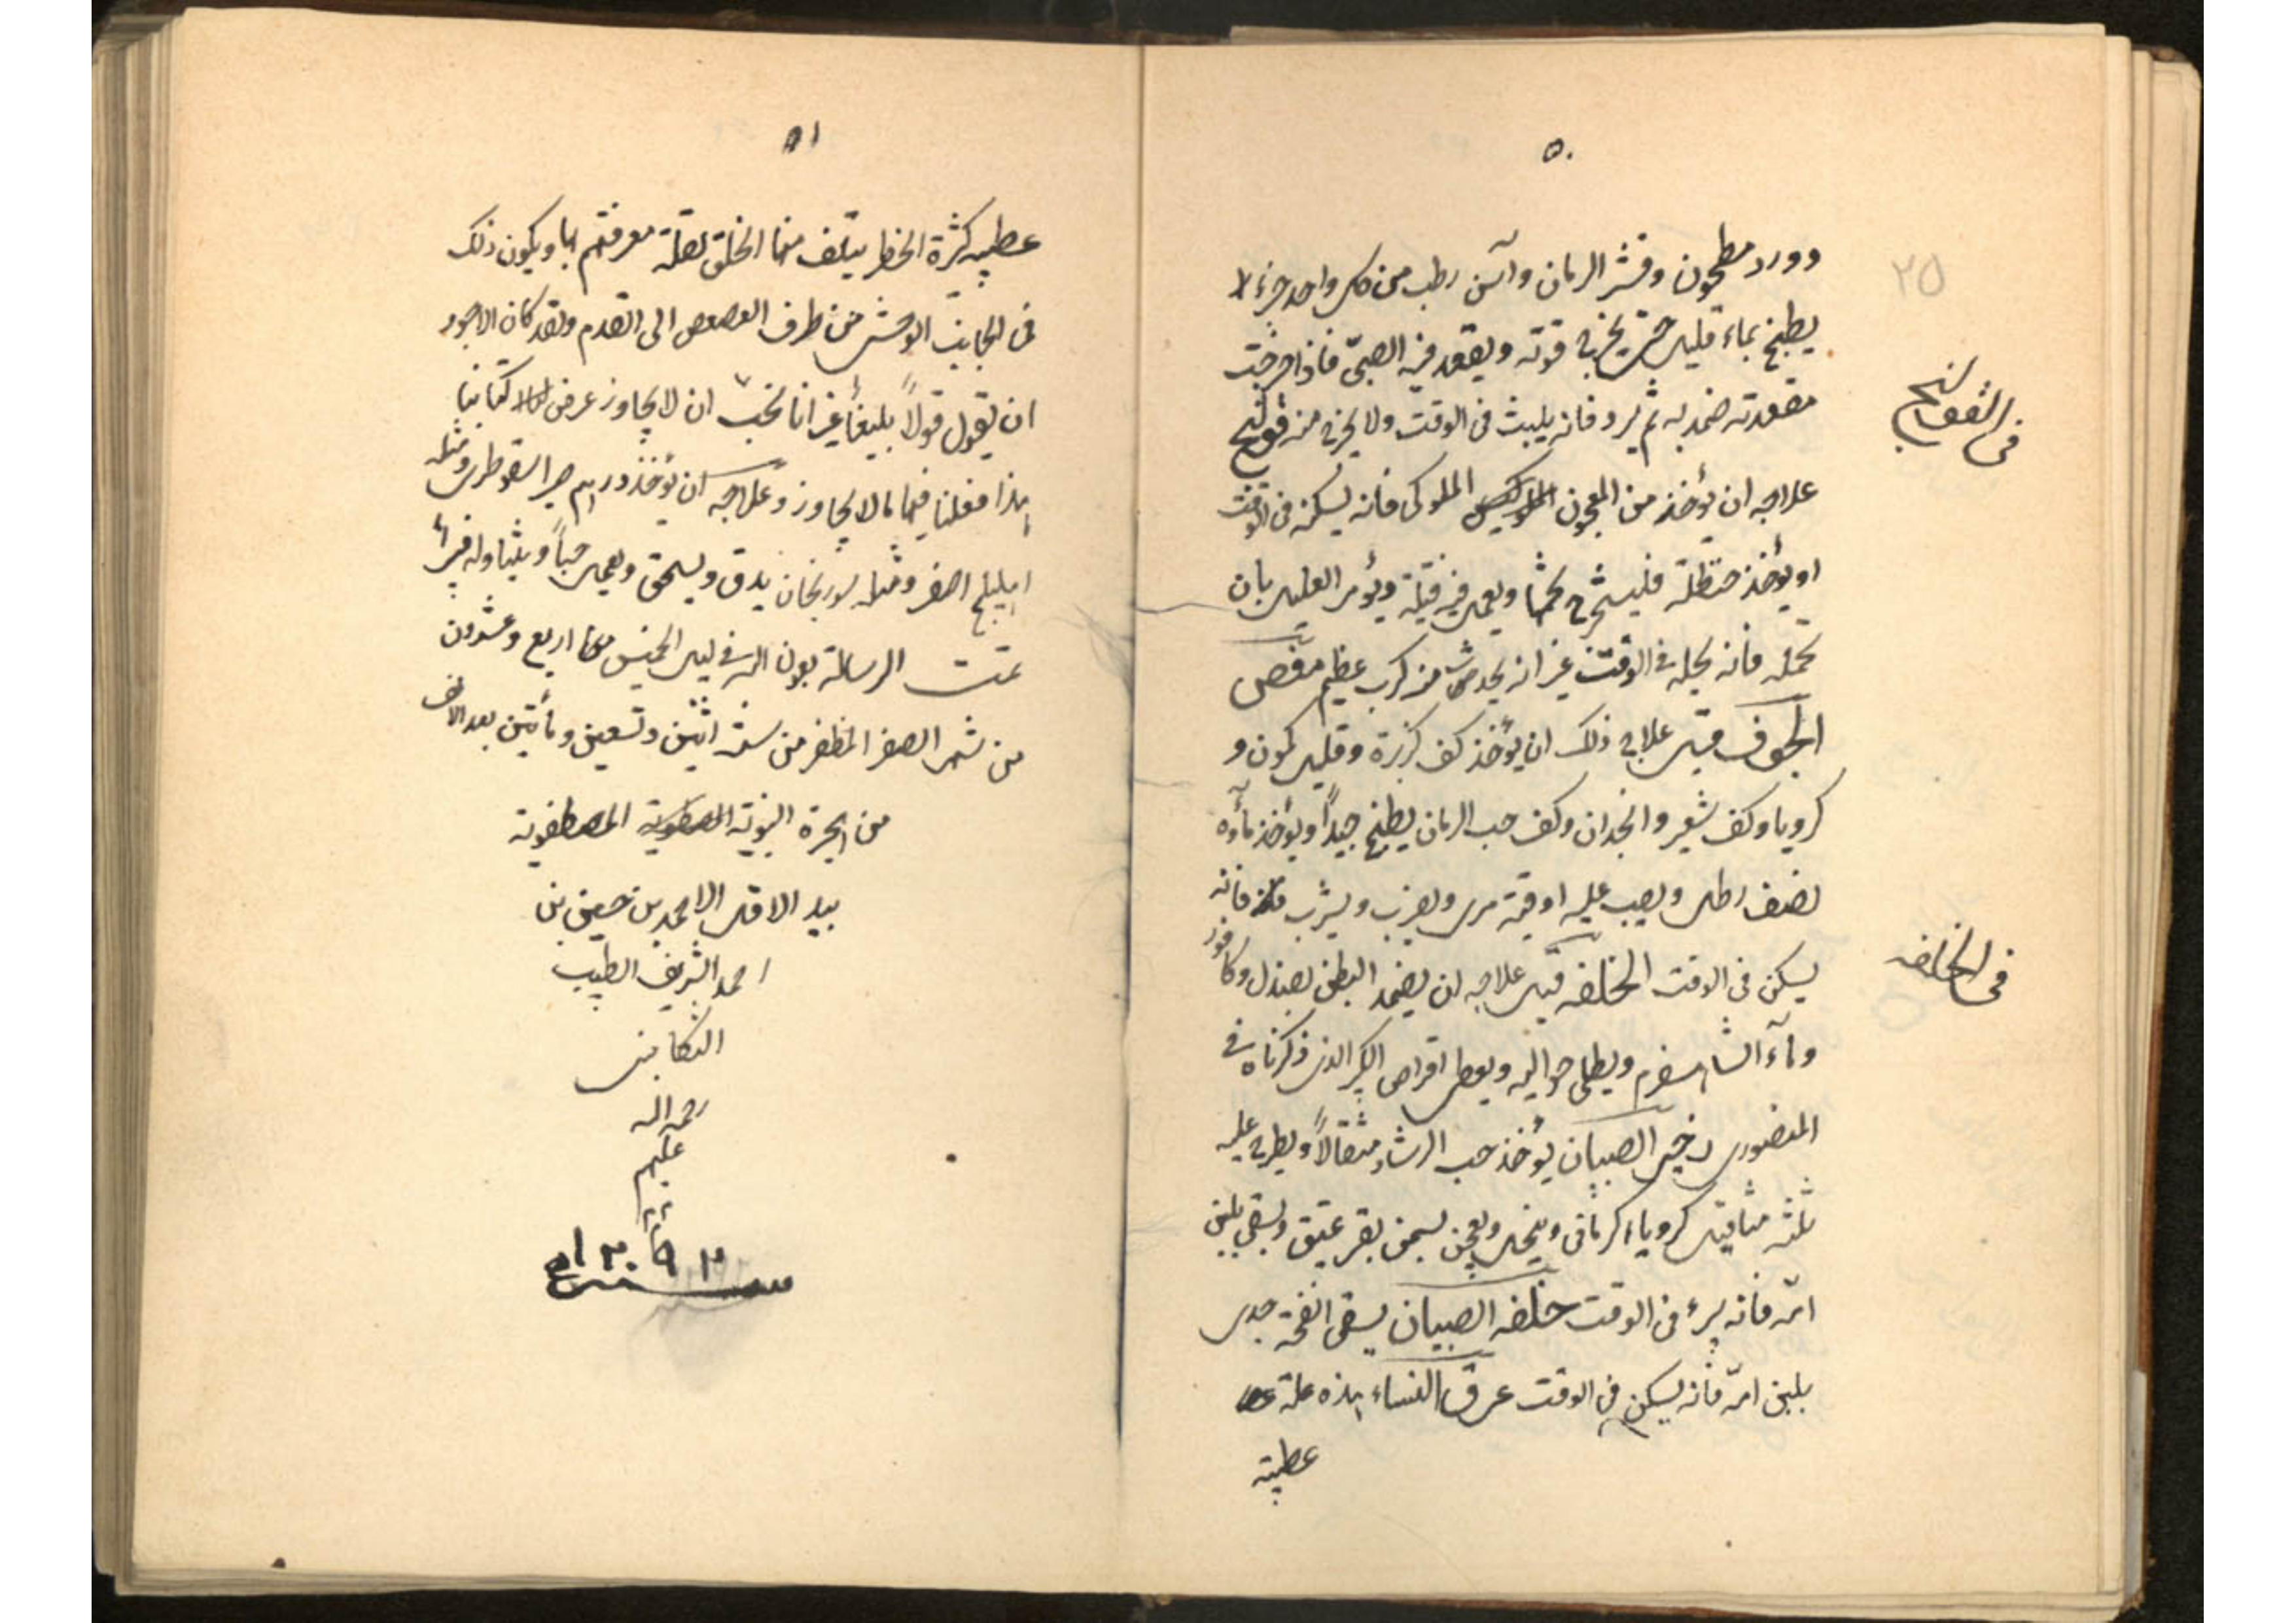 ٥٠
٢٥
وورد مطحون وقشر الرمان وآس رطب من كل واحد جزء لا
يطبخ بماء قليل حتى يخرج قوته ويقعد فيه الصبىّ فاذا خرجت
مقعدته ضمد به ثم يرد فانه يلبث فى الوقت ولا يخرج منه قولنج
فى القولنج
علاجه ان يؤخذ من المعجون الملوكى فانه يسكنه فى الوقت
او يؤخذ حنظلة فليستخرج شحمها ويعمل فيه فتيلة ويؤمر العليل بان
تحمله فانه يحله فى الوقت غير انه يجد من كرب عظيم مغص
الجوف قيل علاج ذلك ان يؤخذ كف كزبرة وقليل كمون و
كرويا وكف شعير وانجدان وكف حب الرمان يطبخ جيداً ويؤخذ مأوه
نصف رطل ويصب عليه اوقية مرى ويضرب ويشرب فانه
يسكن فى الوقت الخلفه قيل علاجه ان يضمد البطن بصندل وكافور
فى الخلفه
وماء الشاهسفرم ويطلى حواليه ويعطى اقراص الذى ذكرناه فى
المنصورى زحير الصبيان يؤخذ حب الرشاد مثقالاً ويطرح عليه
ثلثه مثاقيل كروياء كرمانى وينخل ويعجن بسمن بقر عتيق ويسقى بلبن
امّه فانه يبرء فى الوقت خلفه الصبيان يسقى انفحة جدى
بلبن امّه فانه يسكن فى الوقت عرق النساء هذه علة
عظيمة
٥١
عظيمه كثرة الخطر يتلف منها الخلق لقلة معرفتهم بها ويكون ذلك
فى الجانب الوحشى من طرف العصعص الى القدم ولقد كان الاجود
ان نقول قولاً بليغاً غير انا نحب ان لا يجاوز عرض كتابنا
هذا فقلنا فيها مالا يجاوز وعلاجه ان يؤخذ درهم صبر اسقوطرى ومثله
اهليلج اصفر ومثله سورنجان يدق ويسحق ويعمل حباً ويتناوله فيبرأ
تمت الرسالة بعون الله فى ليل الخميس اربع وعشرون
من شهر الصفر المظفر من سنة اثنين وتسعين ومأتين بعد الالف
من الهجرة النبوية المصطفوية
بيد الاقل محمد بن حسين بن
احمد الشريف الطبيب
التنكابنى
رحمه الله
عليهم
سنه ١٢٩٢